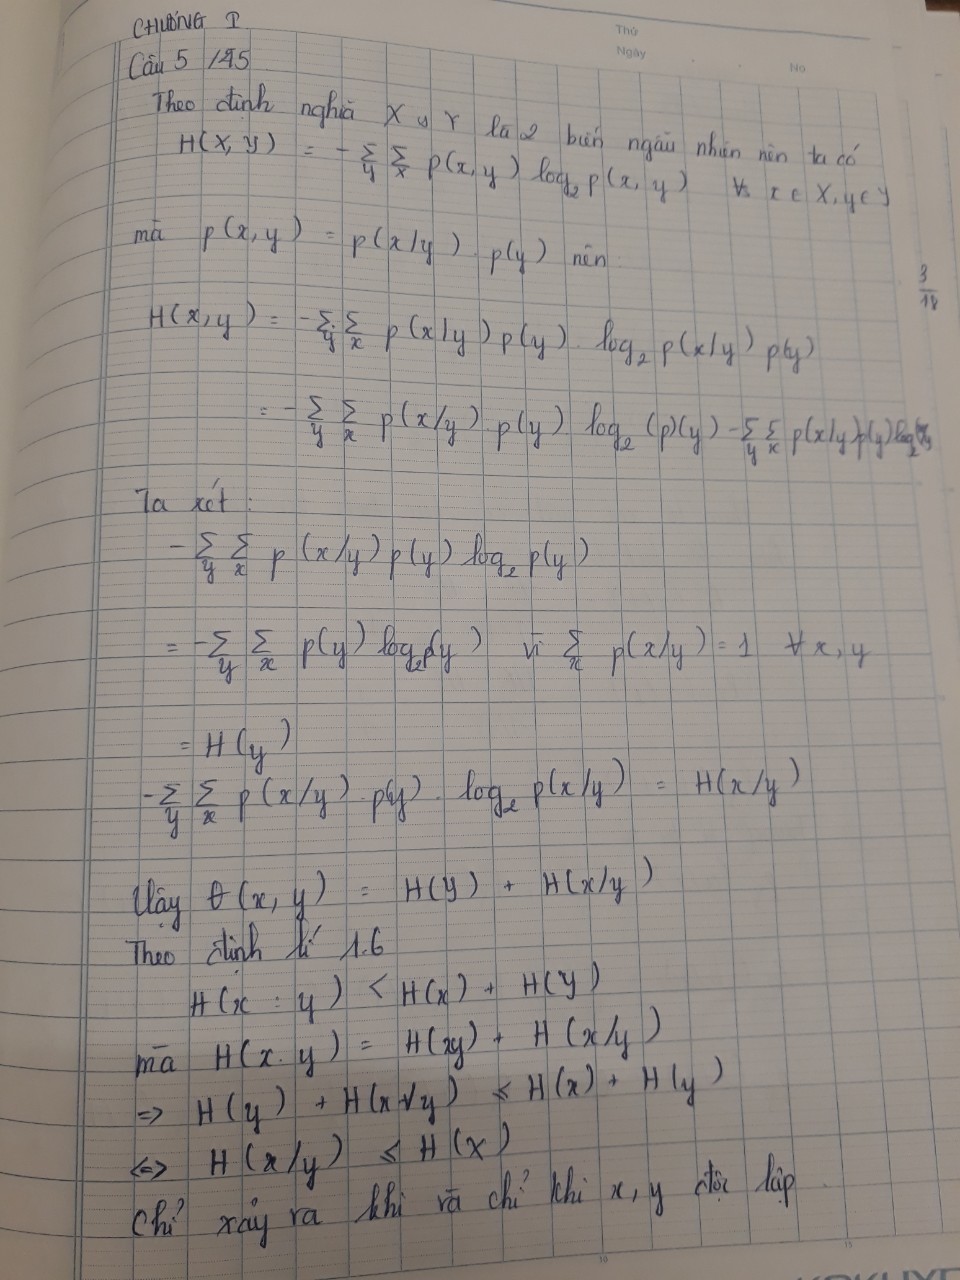 CHƯƠNG I
Thứ
Ngày
No
Câu 5 /45
Theo định nghĩa X và Y là 2 biến ngẫu nhiên nên ta có
H(X, y) = - Σ_y Σ_x p(x, y) log₂ p(x, y) ∀ x ∈ X, y ∈ Y
mà p(x, y) = p(x/y) . p(y) nên
3/18
H(x, y) = - Σ_y Σ_x p(x/y) p(y) . log₂ p(x/y) p(y)
= - Σ_y Σ_x p(x/y) . p(y) log₂ (p)(y) - Σ_y Σ_x p(x/y) p(y) log₂
Ta xét :
- Σ_y Σ_x p (x/y) p(y) log₂ p(y)
= - Σ_y Σ_x p(y) log₂ p(y) vì Σ_x p(x/y) = 1 ∀ x, y
= H(y)
- Σ_y Σ_x p(x/y) . p(y) . log₂ p(x/y) = H(x/y)
Vậy (x, y) = H(Y) + H(x/y)
Theo định lí 1.6
H(x : y) < H(x) + H(Y)
mà H(x . y) = H(xy) + H (x/y)
=> H(y) + H(x/y) ≤ H(x) + H(y)
<=> H(x/y) ≤ H(X)
Chỉ xảy ra khi và chỉ khi x, y độc lập .
10
15